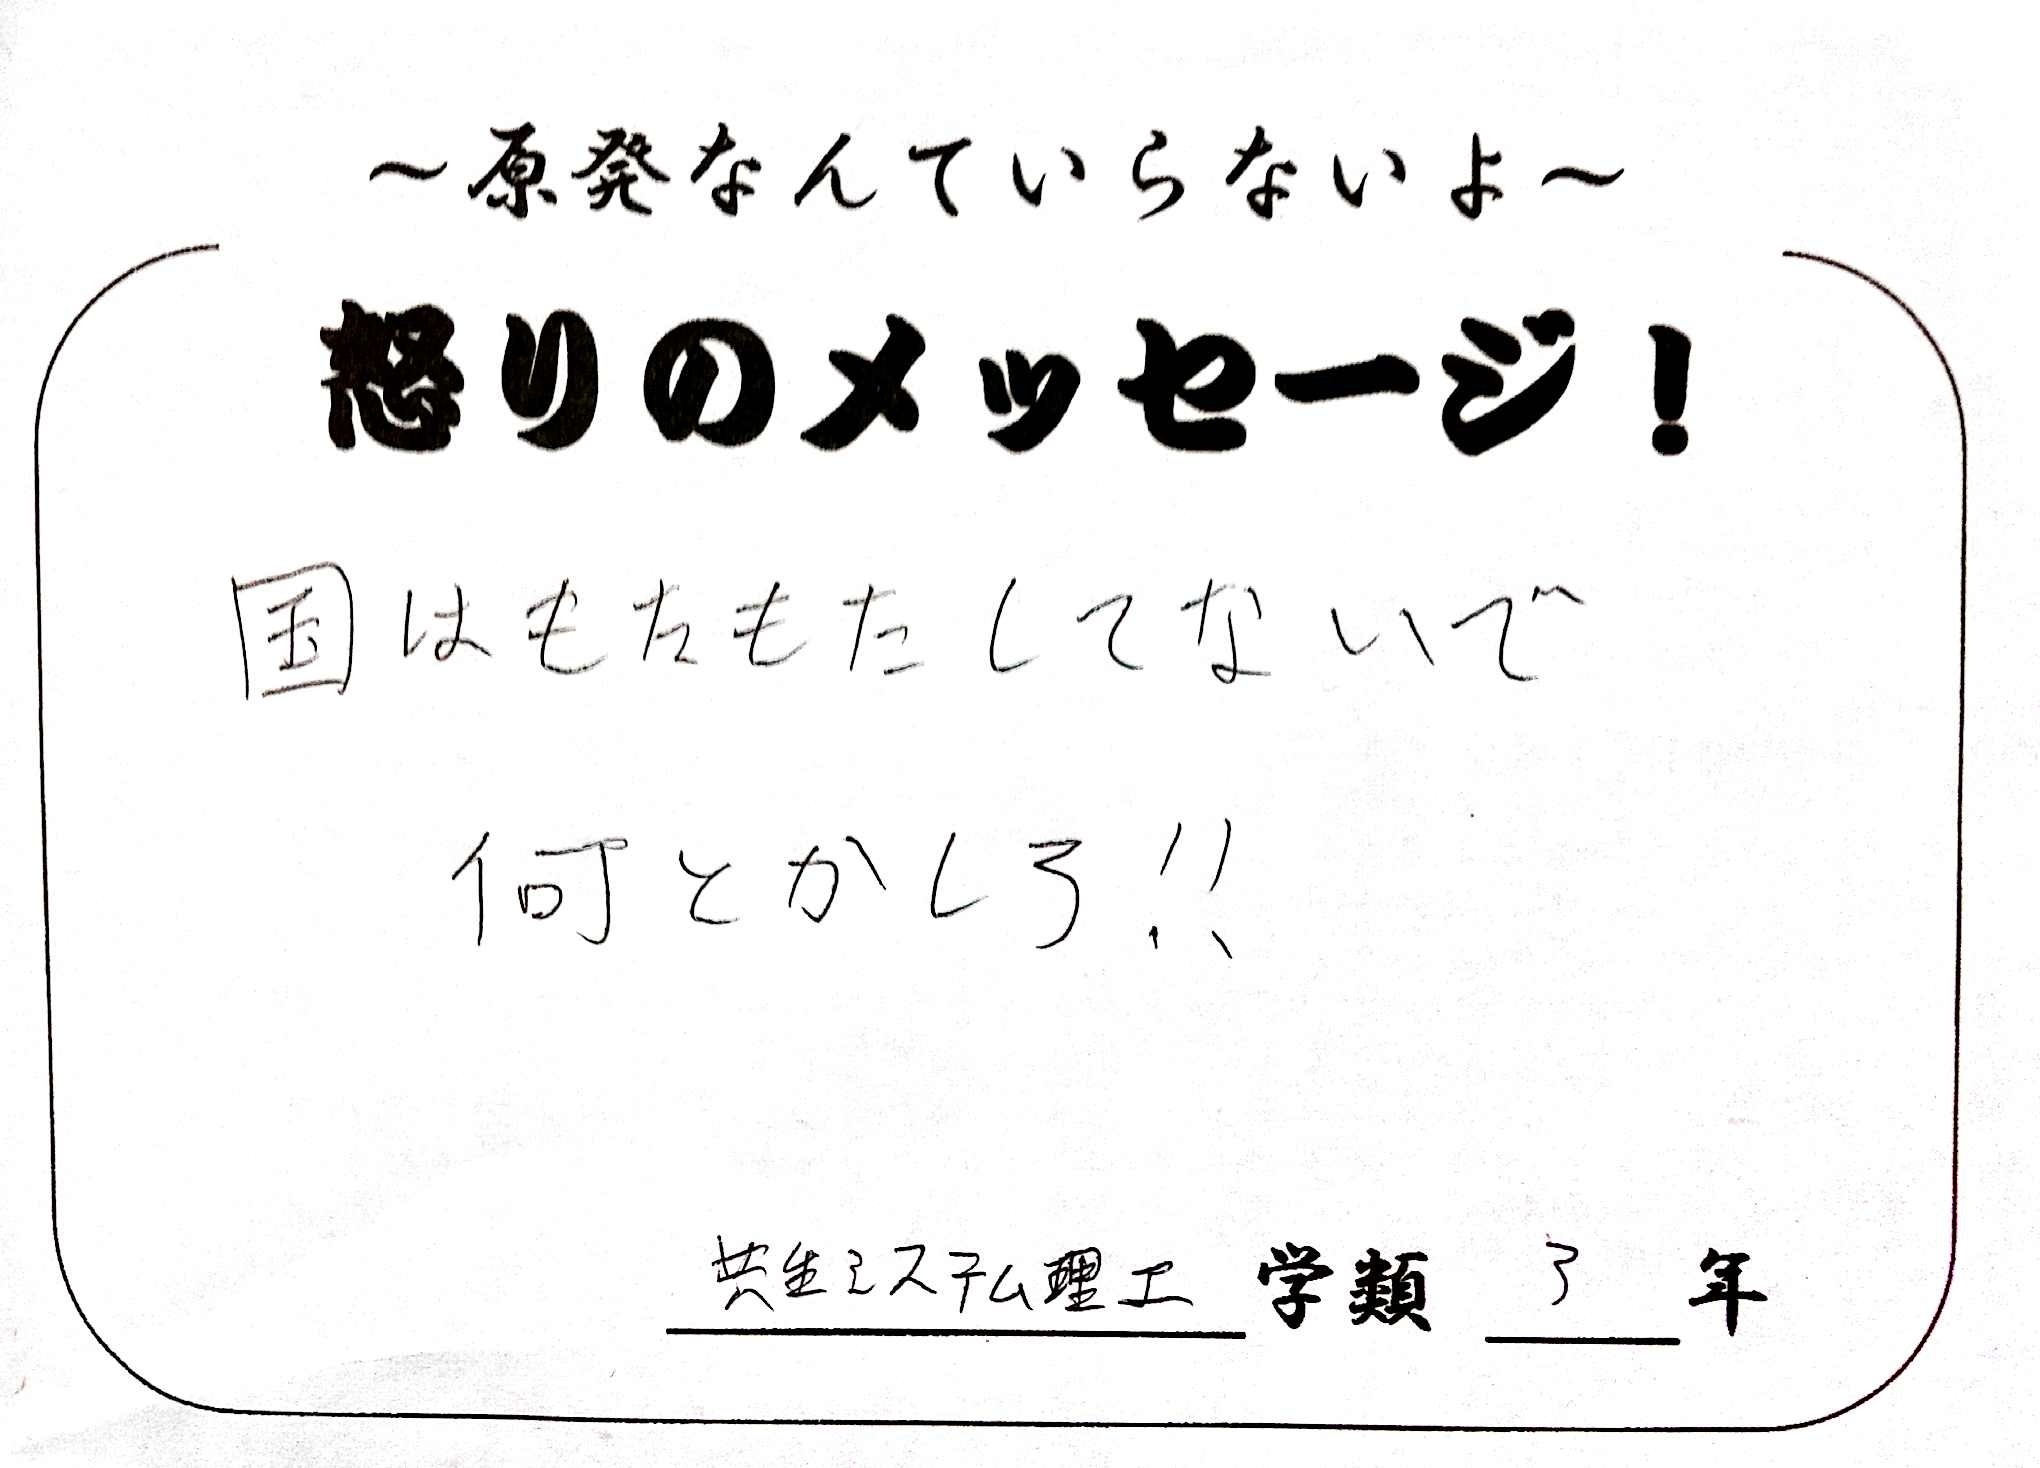 ～原発なんていらないよ～
怒りのメッセージ！
国はもたもたしてないで
何とかしろ!!
共生システム理工学類 3年